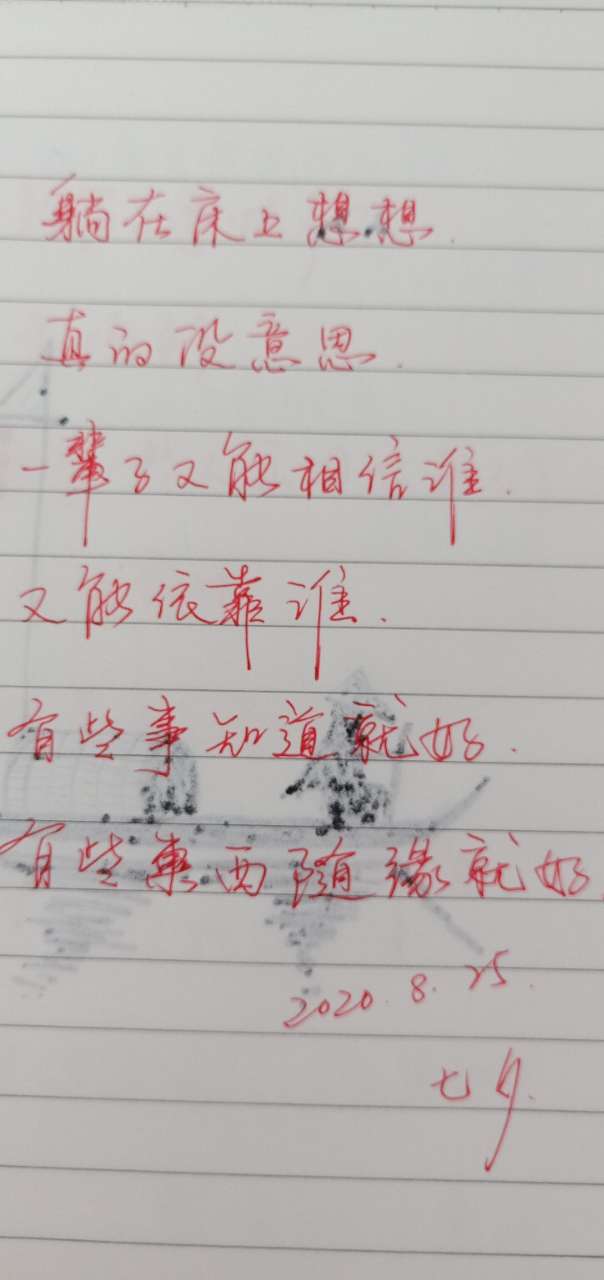 躺在床上想想.
真的没意思.
一辈子又能相信谁.
又能依靠谁.
有些事知道就好.
有些東西随缘就好.
2020.8.25.
七夕.